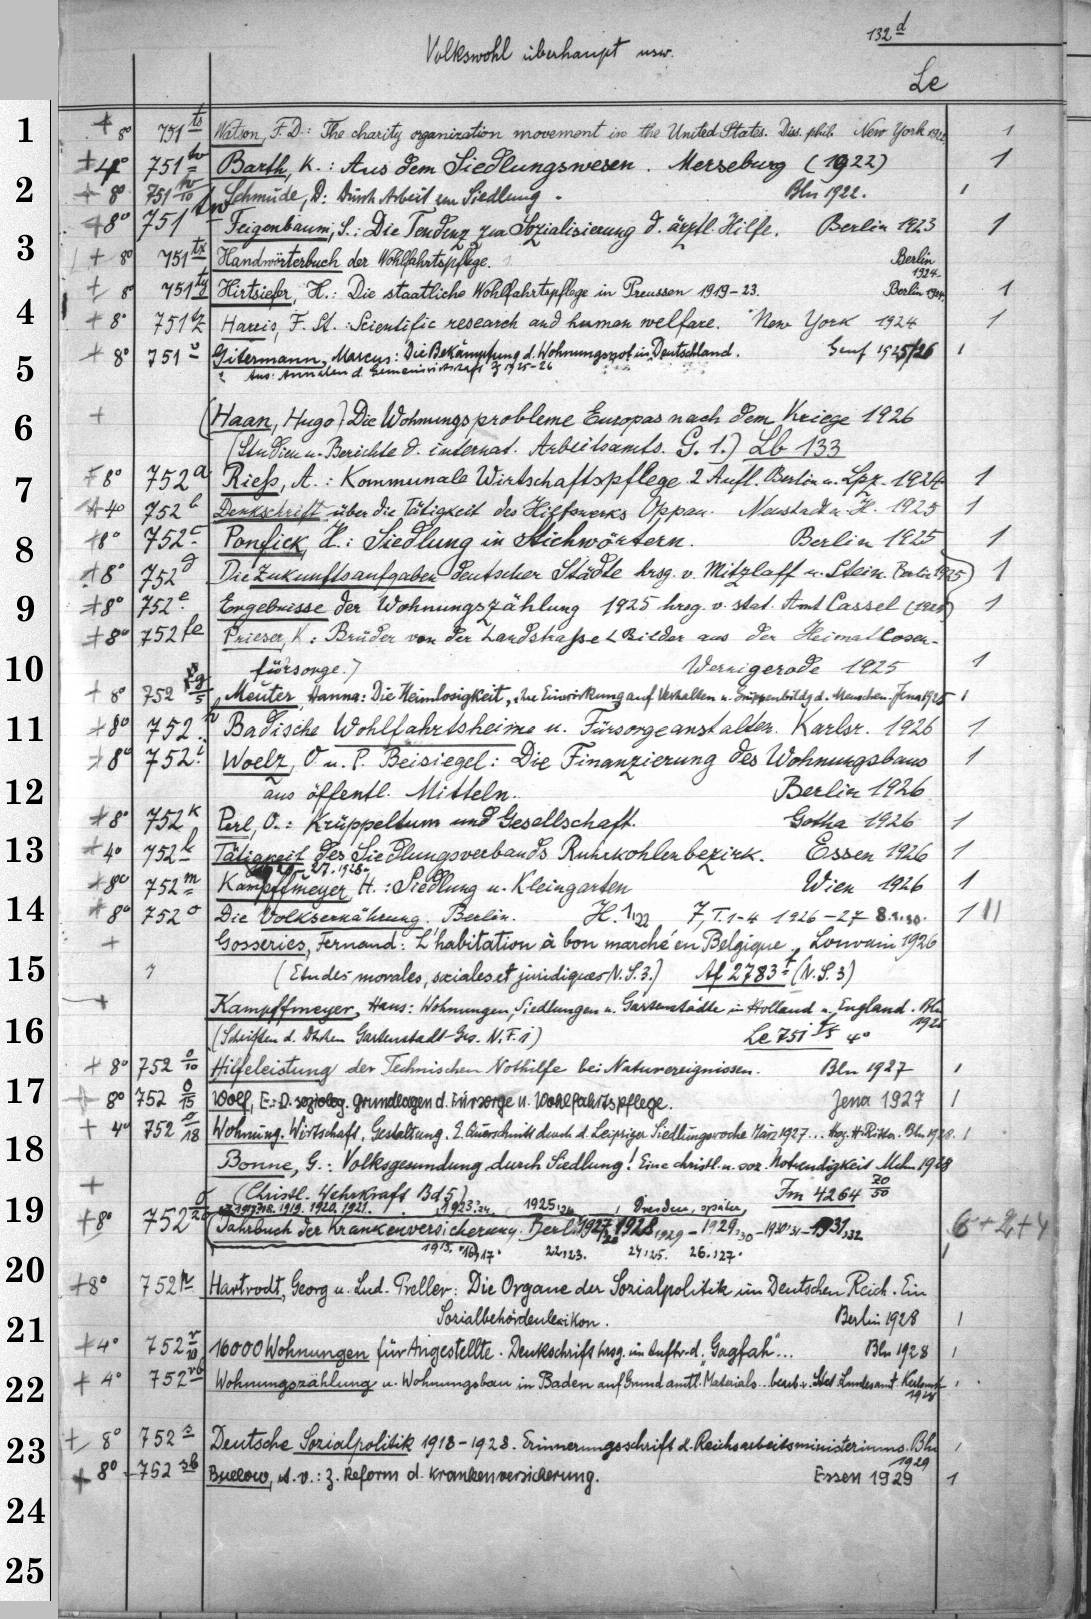 132 d
Volkswohl überhaupt usw.
Le
1 + 8° 751 ts Watson, F. D.: The charity organization movement in the United States. Diss. phil. New York 1922 1
+ 4° 751 Barth, K.: Aus dem Siedlungswesen. Merseburg (1922) 1
2 + 8° 751 Schmude, D: Durch Arbeit zur Siedlung. Bln 1922. 1
+ 8° 751 tw Feigenbaum, S.: Die Tendenz zur Sozialisierung d. ärztl. Hilfe. Berlin 1923 1
3 + 8° 751 tx Handwörterbuch der Wohlfahrtspflege. Berlin 1924
+ 8° 751 ty Hirtsiefer, H.: Die staatliche Wohlfahrtspflege in Preussen 1919-23. Berlin 1924. 1
4 + 8° 751 tz Harris, F. St.: Scientific research and human welfare. New York 1924 1
5 + 8° 751 v Gitermann, Marcus: Die Bekämpfung d. Wohnungsnot in Deutschland. Genf 1925/26 1
Aus: Annalen d. Gemeinwirtschaft Jg 1925-26
6 + (Haan, Hugo) Die Wohnungsprobleme Europas nach dem Kriege 1926
(Studien u. Berichte d. internat. Arbeitsamts. G. 1.) Lb 133
7 + 8° 752 a Riess, A.: Kommunale Wirtschaftspflege 2 Aufl. Berlin u. Lpz. 1924 1
+ 4° 752 b Denkschrift über die Tätigkeit des Hilfswerks Oppau. Neustadt a. H. 1925 1
8 + 8° 752 c Ponfick, H.: Siedlung in Stichwörtern. Berlin 1925 1
+ 8° 752 d Die Zukunftsaufgaben deutscher Städte hrsg. v. Mitzlaff u. Stein. Berlin 1925) 1
9 + 8° 752 e Ergebnisse der Wohnungszählung 1925 hrsg. v. stat. Amt Cassel (1925) 1
+ 8° 752 fe Prieser, K: Brüder von der Landstraße (Bilder aus der Heimatlosen-
10 fürsorge.) Wernigerode 1925 1
+ 8° 752 Meuter, Hanna: Die Heimlosigkeit, Ihre Einwirkung auf Verhalten u. Gruppenbildg d. Menschen. Jena 1925 1
11 + 8° 752 h Badische Wohlfahrtsheime u. Fürsorgeanstalten. Karlsr. 1926 1
+ 8° 752 i Woelz, O. u. P. Beisiegel: Die Finanzierung des Wohnungsbaus 1
12 aus öffentl. Mitteln. Berlin 1926
+ 8° 752 k Perl, O.: Krüppeltum und Gesellschaft. Gotha 1926 1
13 + 4° 752 l Tätigkeit des Siedlungsverbands Ruhrkohlenbezirk. Essen 1926 1
+ 8° 752 m Kampffmeyer, H.: Siedlung u. Kleingarten Wien 1926 1
14 + 8° 752 o Die Volksernährung. Berlin. H. 1,22 7, T. 1-4 1926-27 8. 1 11
+ Gosseries, Fernand: L'habitation à bon marché en Belgique, Louvain 1926
15 (Etudes morales, sociales et juridiques N. S. 3.) Af 2783 t (N. S 3)
+ Kampffmeyer, Hans: Wohnungen, Siedlungen u. Gartenstädte in Holland u. England. Bln 1926
16 (Schriften d. Dtschen Gartenstadt-Ges. N. F. 1) Le 751 4°
+ 8° 752 o/10 Hilfeleistung der Technischen Nothilfe bei Naturereignissen. Bln 1927 1
17 8° 752 o/15 Wolf, E.: D. soziolog. Grundlagen d. Fürsorge u. Wohlfahrtspflege. Jena 1927 1
+ 4° 752 o/18 Wohnung. Wirtschaft, Gestaltung. E. Querschnitt durch d. Leipziger Siedlungswoche März 1927... Hrsg. H. Ritter. Bln 1928. 1
18 Bonne, G.: Volksgesundung durch Siedlung! Eine christl. u. soz. Notwendigkeit Mchn. 1928
+ (Christl. Wehrkraft Bd 5) Fm 4264 20/50
19 1918. 1919. 1920. 1921. 1923. 1925 Dresden, später
+ 8° 752 (Jahrbuch der Krankenversicherung. Berlin 1927 1928, 1929 - 1929,30 - 1930/31 - 1931,32 6+2+4
1915. 16, 17. 22,23. 24,25. 26.,27.
20 + 8° 752 p Hartrodt, Georg u. Lud. Preller: Die Organe der Sozialpolitik im Deutschen Reich. Ein
21 Sozialbehördenlexikon. Berlin 1928 1
+ 4° 752 r/10 16000 Wohnungen für Angestellte. Denkschrift hrsg. im Auftr. d. "Gagfah"... Bln 1928 1
22 + 4° 752 rb Wohnungszählung u. Wohnungsbau in Baden auf Grund amtl. Materials... bearb. v. Stat Landesamt Karlsruhe 1928 1
23 + 8° 752 s Deutsche Sozialpolitik 1918-1928. Erinnerungsschrift d. Reichsarbeitsministeriums. Bln 1929 1
+ 8° 752 sb Buelow, A. v.: z. Reform d. Krankenversicherung. Essen 1929 1
24
25